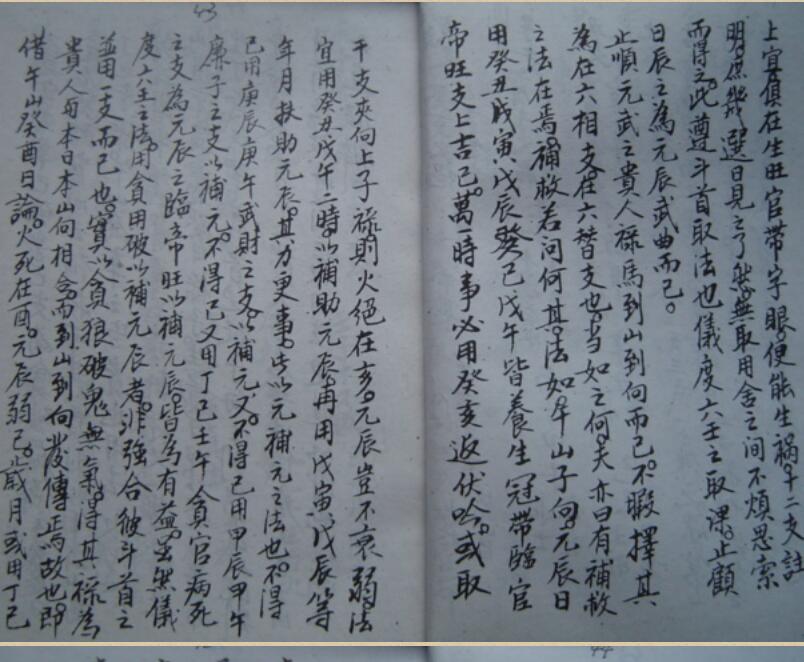 上宜俱在生旺官帶字眼。便能生禍。十二支註
明。庶幾選日見之了然。無取用舍之间不煩思索
而得之。此遵斗首取法也。儀度六壬之取課。止顧
日辰之為元辰武曲而已。
止順元武之貴人禄馬到山到向而已。不暇擇其
為在六相支。在六替支也。当如之何。夫亦曰有補救
之法在焉。補救若问何其法。如午山子向。元辰日
用癸丑戊寅戊辰癸已戊午皆養生冠帶臨官
帝旺支上吉已。萬一時事必用癸亥返伏吟。或取
干支夾向上子禄。則火絕在亥。元辰豈不衰弱。法
宜用癸丑戊午二時。以補助元辰。再用戊寅戊辰等
年月扶助元辰。其力更事。此以元補元之法也。不得
已用庚辰庚午武財之支。以補元。又不得已用甲辰甲午
廉子之支以補元。不得已又用丁已壬午貪官病死
之支為元辰之臨帝旺以補元辰。皆為有益。虽然儀
度六壬之法。用貪用破以補元辰者。非強合彼斗首之
並用一支而已也。實以貪狼破鬼無氣。得其禄為
貴人每本日本山向相合。而到山到向發傳焉故也。即
借午山癸酉日論。火死在酉。元辰弱已。歲月或用丁已